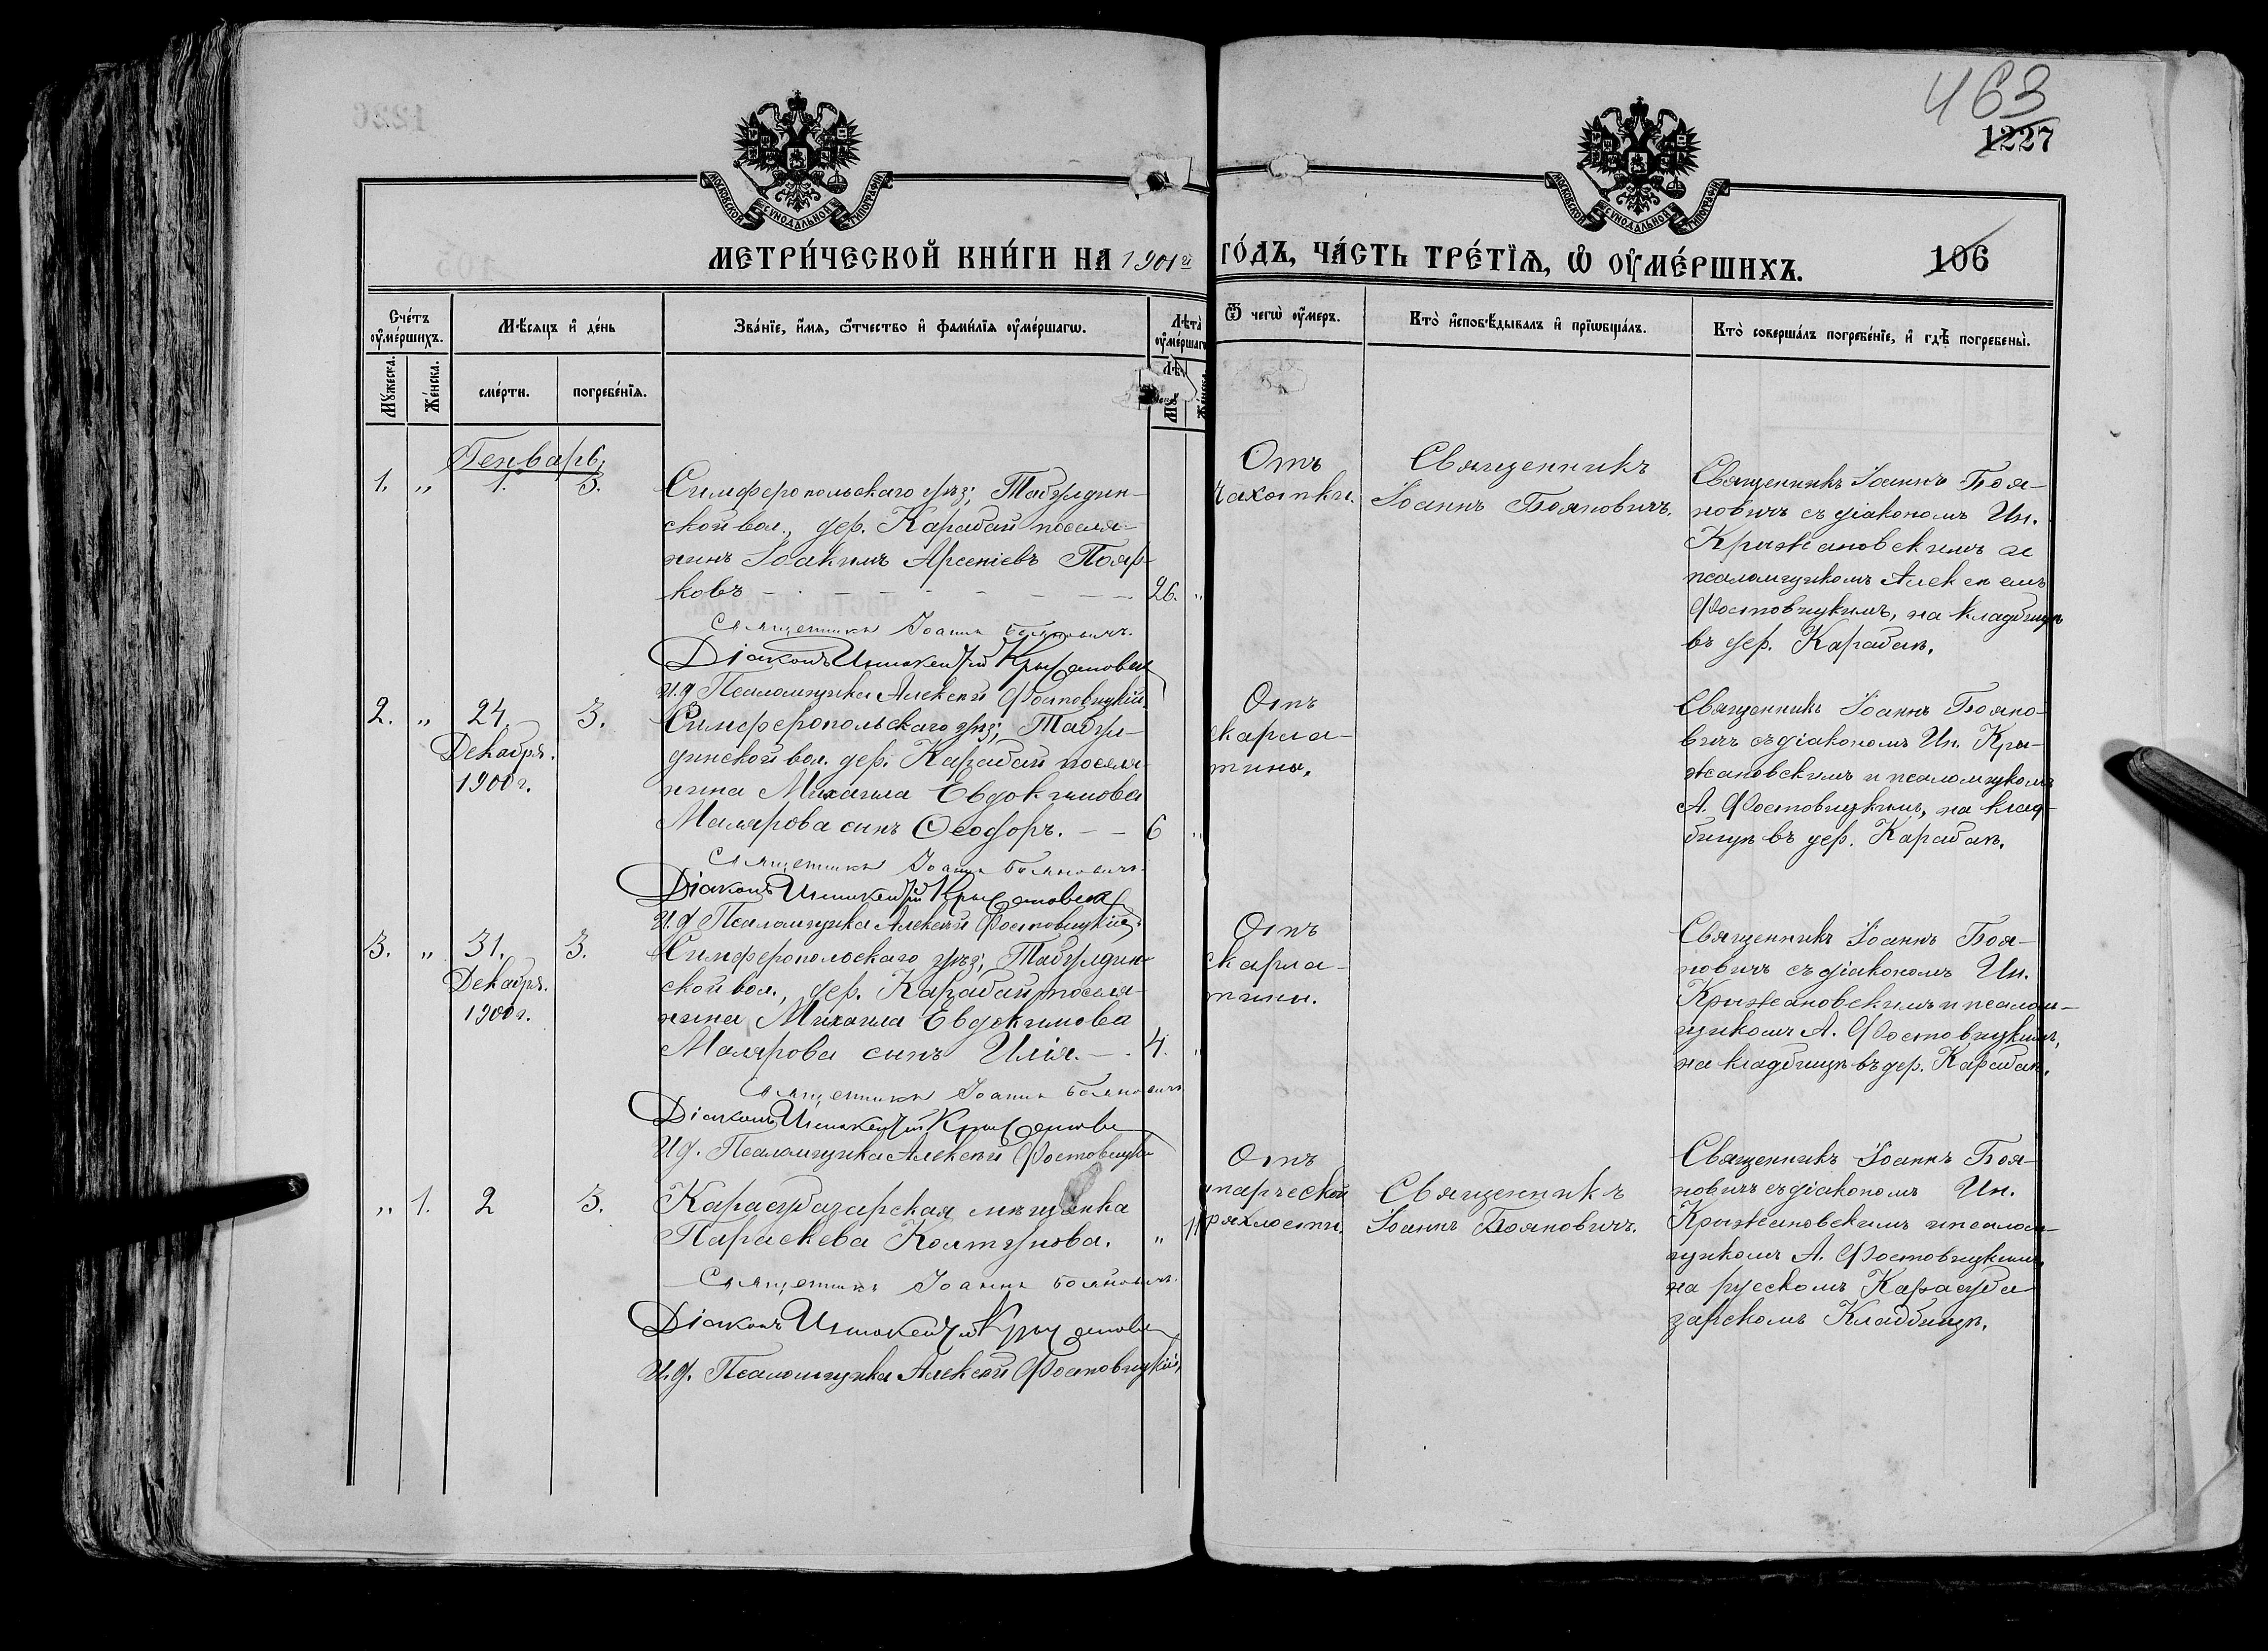 463
1227
МОСКОВСКОЙ СѴНОДАЛЬНОЙ ТИПОГРАФИИ
МОСКОВСКОЙ СѴНОДАЛЬНОЙ ТИПОГРАФИИ
МЕТРИ́ЧЕСКОЙ КНИ́ГИ НА 1901й ГО́ДЪ, ЧА́СТЬ ТРЕ́ТЇѦ, Ѡ ОУ҆МЕ́РШИХЪ.
106
Счéтъ оу҆мéршихъ.
Мѣ́сѧцъ и҆ дéнь
Звáнїе, и҆́мѧ, ѻ҆́тчество и҆ фамилїѧ оу҆мéршагѡ.
Лѣтà оу҆мéршагѡ
Ѿ чегѡ̀ оу҆́меръ.
Ктò и҆сповѣ́дывалъ и҆ прїѡбщáлъ.
Ктò совершáлъ погребéнїе, и҆ гдѣ̀ погребены̀.
Мꙋ́жеска.
Жéнска.
смéрти.
погребéнїѧ.
Генварь
1. „ 1. 3.
Симферопольскаго уѣз; Табулдин-
ской вол., дер. Карабай поселя-
нинъ Іоакимъ Арсеніевъ Пояр-
ковъ 26. „
Священникъ Іоаннъ Бояновичъ.
Діаконъ Иннокентій Крыжановск
И.д. Псаломщика Алексѣй Фостовицкій.
Отъ
чахотки.
Священникъ
Іоаннъ Бояновичъ.
Священникъ Іоаннъ Боя-
новичъ съ діакономъ Ин.
Крыжановскимъ и
псаломщикомъ Алексѣемъ
Фостовицкимъ, на кладбищѣ
въ дер. Карабаѣ.
2. „ 24. 3.
Декабря.
1900 г.
Симферопольскаго уѣз; Табул-
динской вол. дер. Карабай поселя-
нина Михаила Евдокимова
Малярова сынъ Ѳеодоръ. – – 6 „
Священникъ Іоаннъ Бояновичъ.
Діаконъ Иннокентій Крыжановск
И.д. Псаломщика Алексѣй Фостовицкій.
Отъ
скарла-
тины.
Священникъ Іоаннъ Бояно-
вичъ съ діакономъ Ин. Кры-
жановскимъ и псаломщикомъ
А. Фостовицкимъ, на клад-
бищѣ въ дер. Карабаѣ.
3. „ 31. 3.
Декабря.
1900 г.
Симферопольскаго уѣз; Табулдин-
ской вол., дер. Карабай поселя-
нина Михаила Евдокимова
Малярова сынъ Илія. – . 4. „
Священникъ Іоаннъ Бояновичъ
Діаконъ Иннокентій Крыжановск
И.д. Псаломщика Алексѣй Фостовицкій
Отъ
скарла-
тины.
Священникъ Іоаннъ Боя-
новичъ съ діакономъ Ин.
Крыжановскимъ и псалом-
щикомъ А. Фостовицкимъ,
на кладбищѣ въ дер. Карабаѣ.
„ 1. 2 3.
Карасубазарская мѣщанка
Параскева Колтунова. „
Священникъ Іоаннъ Бояновичъ.
Діаконъ Иннокентій Крыжановск
И.д. Псаломщика Алексѣй Фостовицкій,
Отъ
старческой
дряхлости.
Священникъ
Іоаннъ Бояновичъ.
Священникъ Іоаннъ Боя-
новичъ съ діакономъ Ин.
Крыжановскимъ и псалом-
щикомъ А. Фостовицкимъ,
на русскомъ Карасуба-
зарскомъ Кладбищѣ.